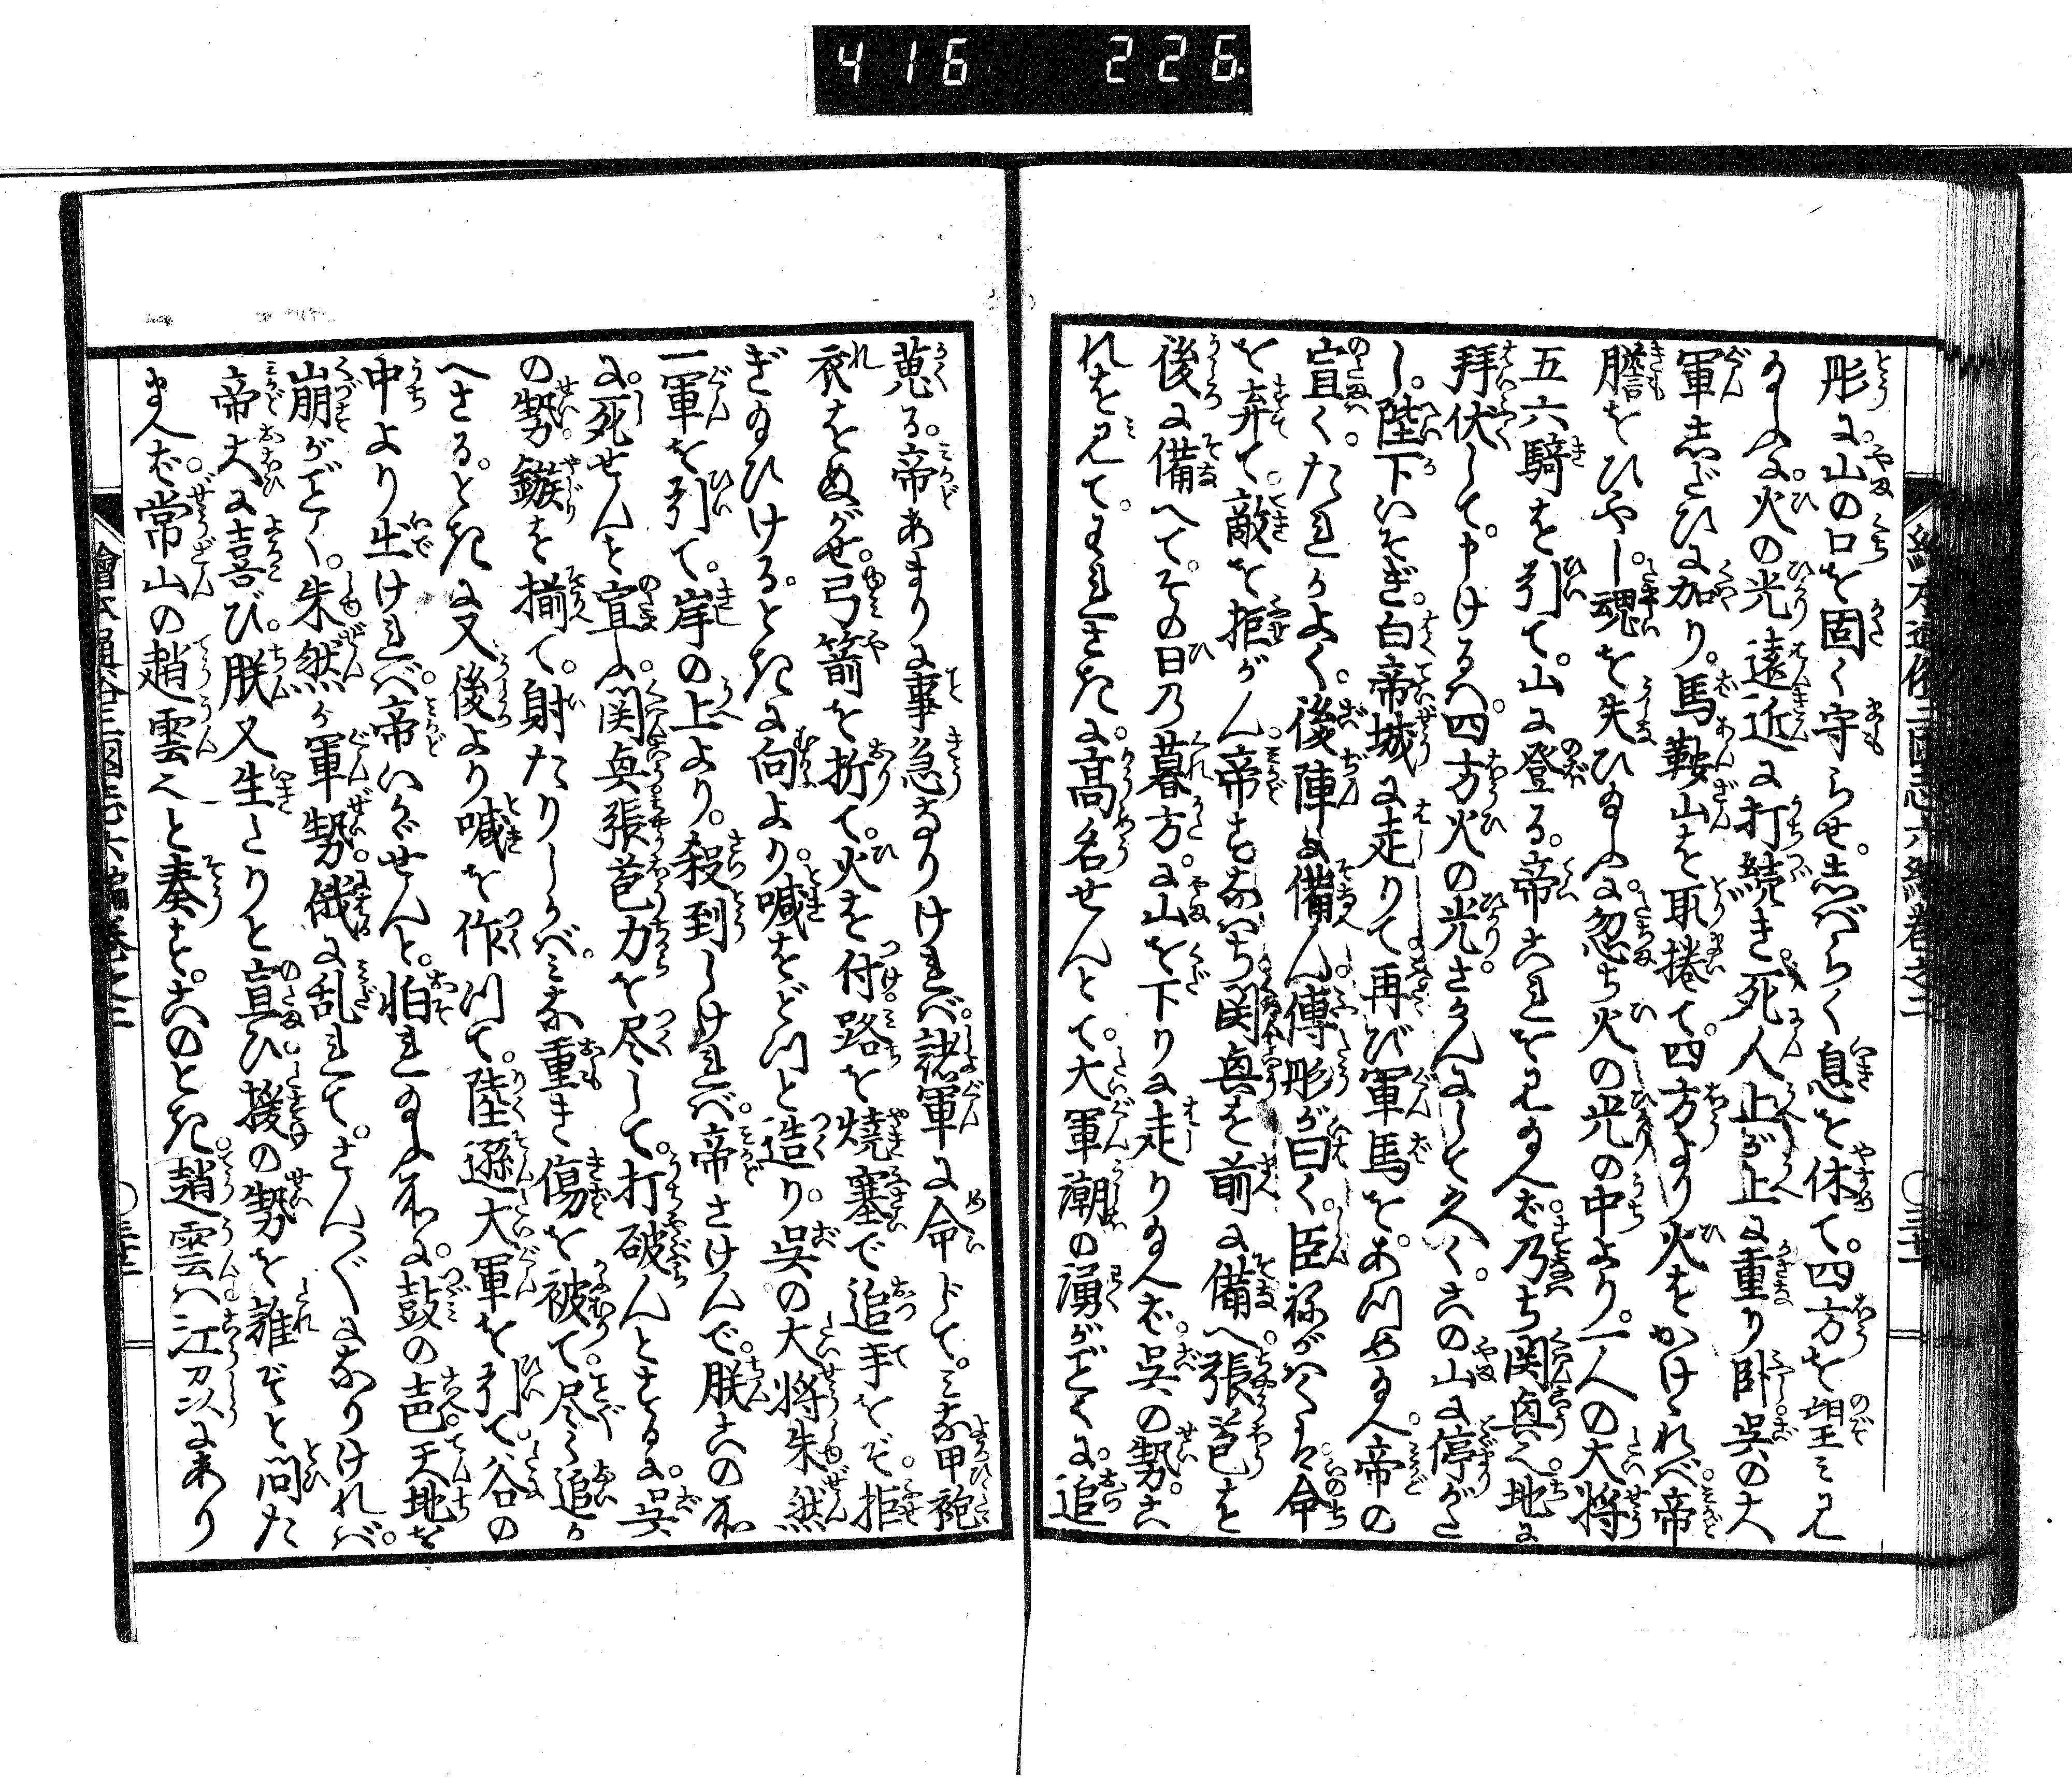 416 226
彤に。山の口を固く守らせ。志ばらく息を休て。四方を望み見
給ふに。火の光遠近に打続き。死人上が上に重り臥。呉の大
軍志だひに加り。馬鞍山を取捲て。四方より火をかけゝれば。帝
膽をひやし。魂を失ひ給ふに。忽ち火の光の中より。一人の大将
五六騎を引て。山に登る。帝これを見給へば。乃ち関興也。地に
拝伏して。申けるハ。四方火の光。さかんにして久く。この山に停がた
し。陛下いそぎ。白帝城に走りて。再び軍馬を。あつめ給へ。帝の
宣く。たれかよく。後陣に備ん。傅彤が曰く。臣祢がハくは。命
を弃て。敵を拒がん。帝すなハち関興を前に備へ。張苞を
後に備へて。その日の暮方に。山を下りに走り給へば。呉の勢。こ
れを見て。われさきに。高名せんとて。大軍潮の湧がごとくに。追
蒐る。帝あまりに事急なりければ。諸軍に命じて。みな甲袍
衣をぬがせ。弓箭を折て。火を付。路を焼塞で追手をぞ。拒
ぎ給ひける。ときに向より。喊をどつと造り。呉の大将朱然
一軍を引て。岸の上より。殺到しければ。帝さけんで。朕この所
に。死せんと宣ふ。関興張苞力を尽して。打破んとするに。呉
の勢。鏃を揃て。射たりしかば。みな重き傷を被て。尽く追か
へさる。ときに又後より喊を作つて。陸遜大軍を引て。谷の
中より出ければ。帝いかゞせんと。怕れ給ふ所に。鼓の声。天地を
崩がごとく。朱然が軍勢。俄に乱れて。さんざんになりければ。
帝大に喜び。朕又生たりと宣ひ。援の勢を誰ぞと問た
まへば。常山の趙雲也と奏す。このとき。趙雲ハ江州に来り
繪本通俗三國志六編巻之三